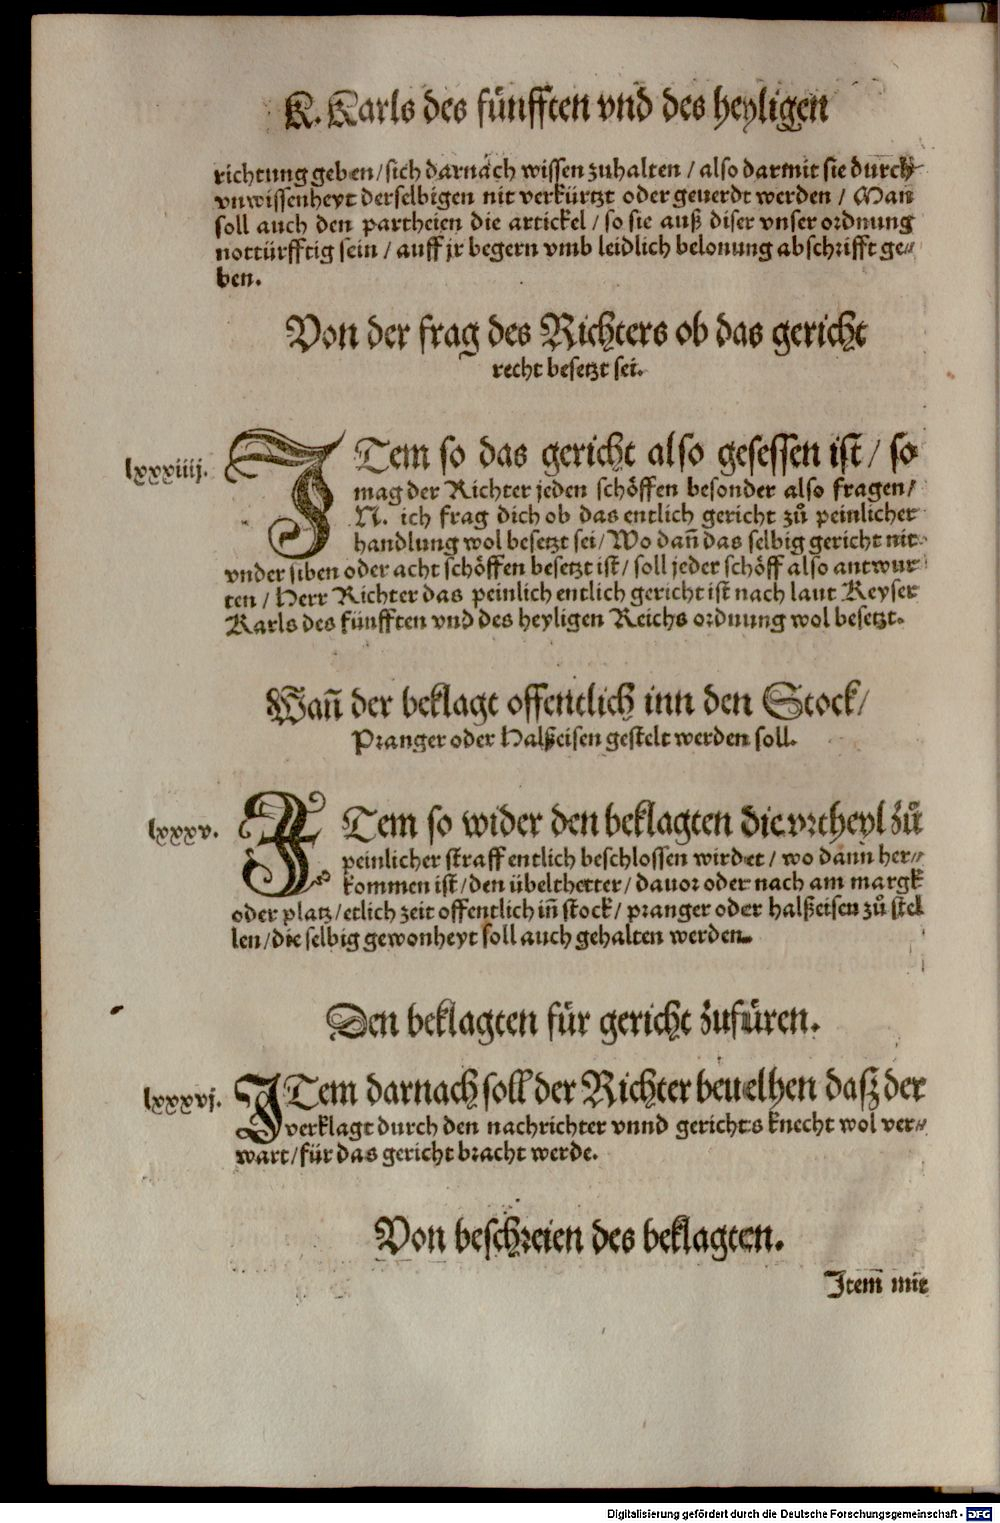 K. Karls des fünfften vnd des heyligen
richtung geben / sich darnach wissen zuhalten / also darmit sie durch
vnwissenheyt derselbigen nit verkürtzt oder geuerdt werden / Man
soll auch den partheien die artickel / so sie auß diser vnser ordnung
nottürfftig sein / auff jr begern vmb leidlich belonung abschrifft ge⸗
ben.
Von der frag des Richters ob das gericht
recht besetzt sei.
lxxxiiij.
ITem so das gericht also gesessen ist / so
mag der Richter jeden schöffen besonder also fragen /
N. ich frag dich ob das entlich gericht zů peinlicher
handlung wol besetzt sei / Wo dañ das selbig gericht nit
vnder siben oder acht schöffen besetzt ist / soll jeder schöff also antwur
ten / Herr Richter das peinlich entlich gericht ist nach laut Keyser
Karls des fünfften vnd des heyligen Reichs ordnung wol besetzt.
Wañ der beklagt offentlich inn den Stock /
Pranger oder Halßeisen gestelt werden soll.
lxxxv.
ITem so wider den beklagten die vrtheyl zů
peinlicher straff entlich beschlossen wirdet / wo dann her⸗
kommen ist / den übelthetter / dauor oder nach am margk
oder platz / etlich zeit offentlich iñ stock / pranger oder halßeisen zů stel
len / die selbig gewonheyt soll auch gehalten werden.
Den beklagten für gericht zufüren.
lxxxvj.
ITem darnach soll der Richter beuelhen dasz der
verklagt durch den nachrichter vnnd gerichts knecht wol ver⸗
wart / für das gericht bracht werde.
Von beschreien des beklagten.
Item̃ mit
Digitalisierung gefördert durch die Deutsche Forschungsgemeinschaft - DFG